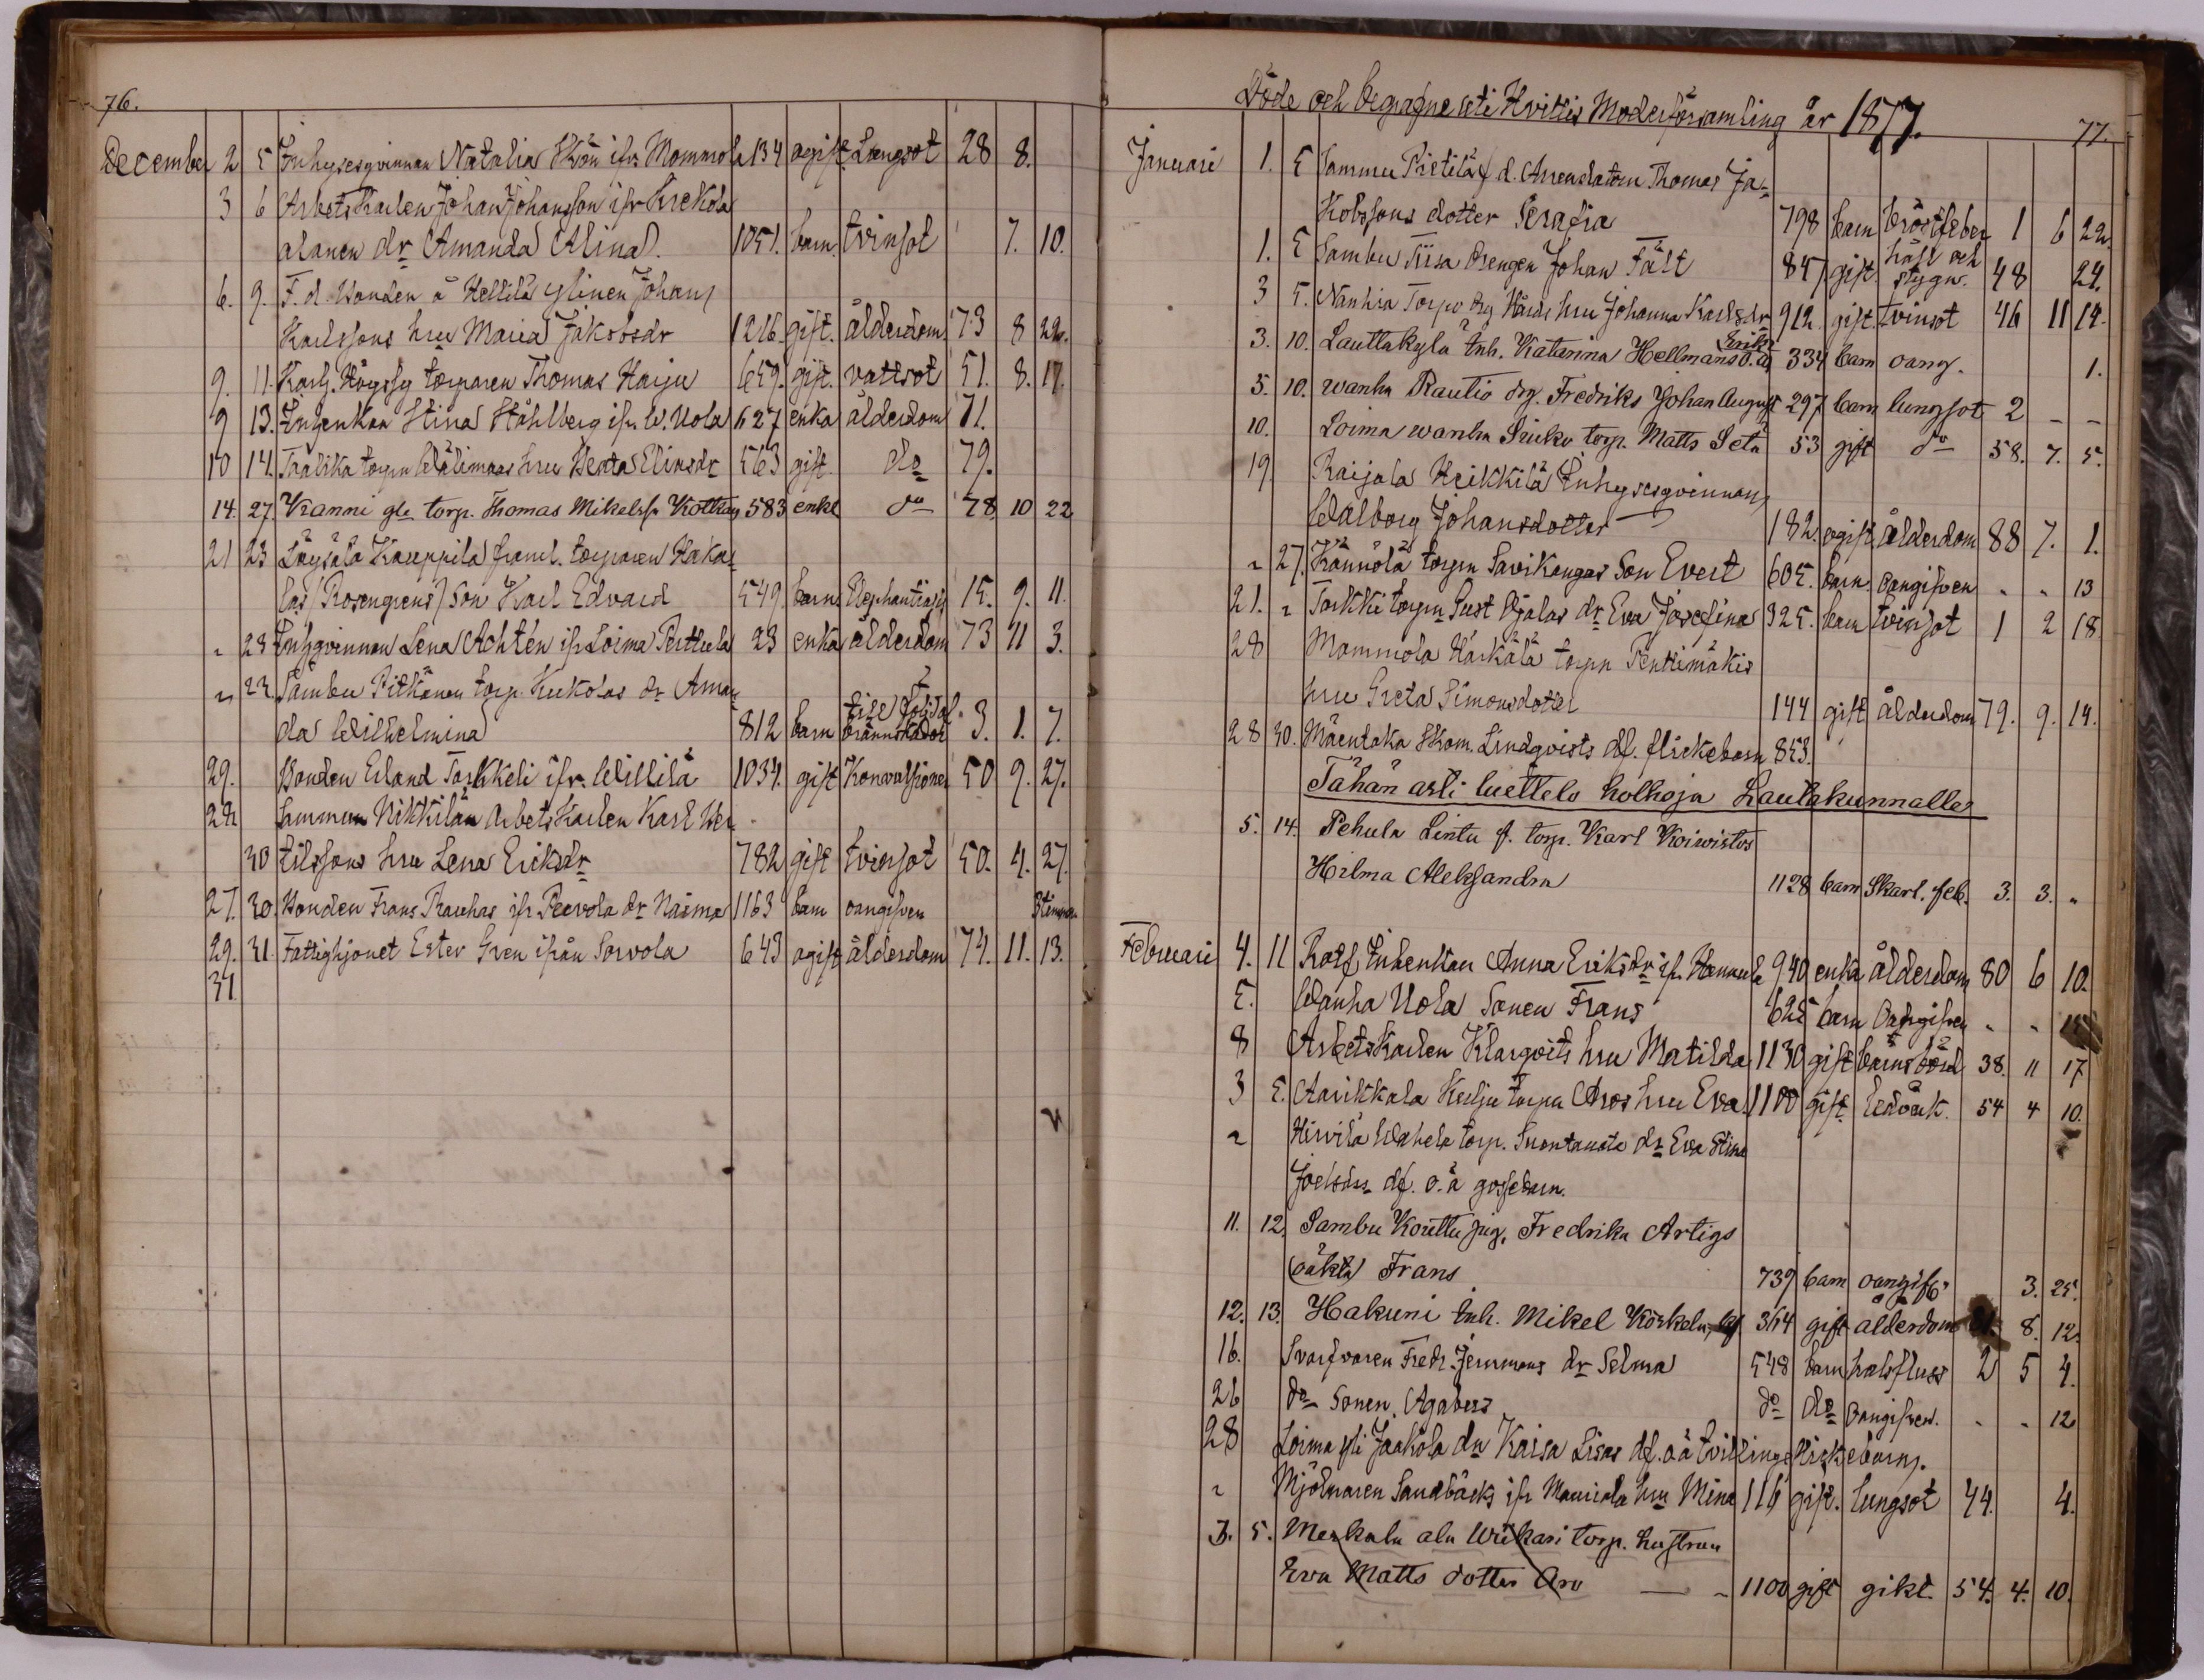 76.
December 2 5 Inhysesqvinnan Natalia Skön ifr. Mommola 134 ogift Lungsot 28 8.
3 6 Arbetskarlen Johan Johansson ifr Krekola
alanen dr Amanda Alina 1051. barn. tvinsot 7. 10.
6. 9. F. d. Bonden å Hellilä ylinen Johan
Karlssons hru Maria Jakobsdr 1216. gift. ålderdom 73 8 22.
9. 11. Karhj. torparen Thomas Harju 659. gift. vattsot 51. 8. 17.
9 13. Inhenkan Stina Ståhlberg ifr. W. Uola 627 enka ålderdom 71.
10 14. torpn Wälimaas hru Berta Elinsdr 563 gift. do 79.
14. 27. Kranni gle torp. Thomas Mikelss. Kotkas 583 enkl do 78. 10 22
21 23 Löysälä Kauppila framl. torparen Haka-
las (Rosengrens) Son Karl Edvard 549. barn Elephantiasis 15. 9. 11.
" 23 Inhqvinnan Lena Achtén ifr Loima Perttula 23 enka ålderdom 73 11 3.
" 23. Sambu Pitkänen torp. Kukolas dr Aman-
da Wilhelmina 812 barn brännskador 3. 1. 7.
29. Bonden Erland Torkkeli ifr. Willilä 1034. gift Konvulsioner 50 9. 27.
28 Sammun Nikkilän Arbetskarlen Karl Ber-
30 tilssons hru Lena Eriksdr 782 gift tvinsot 50. 4. 27.
27. 30. Bonden Frans Rauhas ifr. Peevola dr Naima 1163 barn oangifven 3 timmar
29. 31. Fattighjonet Ester Gren ifrån Sorvola 643 ogift ålderdom 74. 11. 13.
31
Döde och begrafne uti Hvittis Moderförsamling år 1877.
77.
Januari 1. 5 Sammu Pietilä f. d. Arrendatorn Thomas Ja-
kobssons dotter Serafia 798 barn bröstfeber 1 6 22.
1. 5 Sambu Tiisa drengen Johan Fält 847. gift. håll och stygn. 48 24.
3 5. Nanhia Torpo drg Hårds hru Johanna Karlsdr 912. gift. tvinsot 46 11 14.
3. 10. Lauttakylä Inh. Katarina Hellmans o. ä. Erik 334 barn oang. 1.
5. 10. Wanha Rautio drg. Fredriks Johan August 297 barn lungsot 2 - -
10. Loima wanha Sriuko torp. Matts Setä 53 gift do 58. 7. 5.
19. Raijala Heikkilä Inhysesqvinnan
Walborg Johansdotter 182. ogift ålderdom 88 7. 1.
" 27. Kännölä torpn Savikangas Son Evert 605. barn. oangifven " " 13
21. " Torkki torpn Sust Ojalas dr Eva Josefina 325. barn tvinsot 1 2 18.
28 Mommola Härkälä torpn Penttimäkis
hru Greta Simonsdotter 144 gift ålderdom 79. 9. 14.
28 30. Mäentaka Skom. Lindqvists df. flickebarn 853.
Tähän asti luettelo holhoja Lautakunnalle
5. 14. Pehula Lintu f. torp. Karl Koivistos
Hilma Aleksandra 1128 barn Skarl. feb. 3. 3. "
Februari 4. 11 Inhenkan Anna Eriksdr ifr. 940 enka ålderdom 80 6 10.
5. Wanha Uola Sonen Frans 625 barn Oangifven " "
8 Arbetskarlen Klarqvists hru Matilda 1130 gift barnsbörd 38. 11 17
3 5. Aarikkala Keilju torpn Aros hru Eva 1100 gift ledvärk. 54 4 10.
" Hirvilä Wahela torp. Suontausta dr Eva Stina
Joelsdrs df. o. ä gossebarn.
11. 12. Sambu Kouttu pig. Fredrika Artigs
(oäkta) Frans 739 barn oangifv. 3. 25.
12. 13. Hakuni Inh. Mikel Körkelu 364 gift ålderdom 8. 12.
16. Svarfvaren Fredr. Jernmans dr Selma 548 barn halsfluss 2 5 4.
26 do Sonen Agaberz do do oangifven. " " 12
28 Loima yli Jaakola dn Kaisa Lisas df. oä tvillinge flickebarn.
" Mjölnaren Sandbäcks ifr Mauriala hru Mina 116 gift. lungsot 44. 4.
3. 5. Meskala ala Wrikari torp. hustrun
Eva Matts dotter Aro — " 1100 gift gikt. 54. 4. 10.